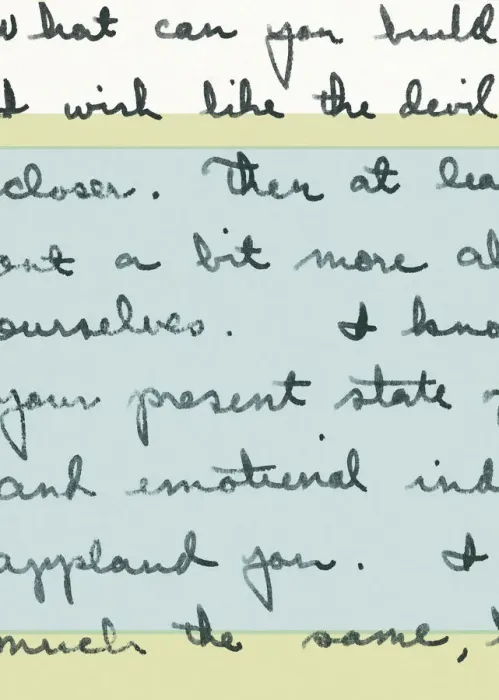 What can you build
I wish like the devil
closer. Then at lea
out a bit more al
ourselves. I kno
your present state
and emotional ind
applaud you. I
much the same,